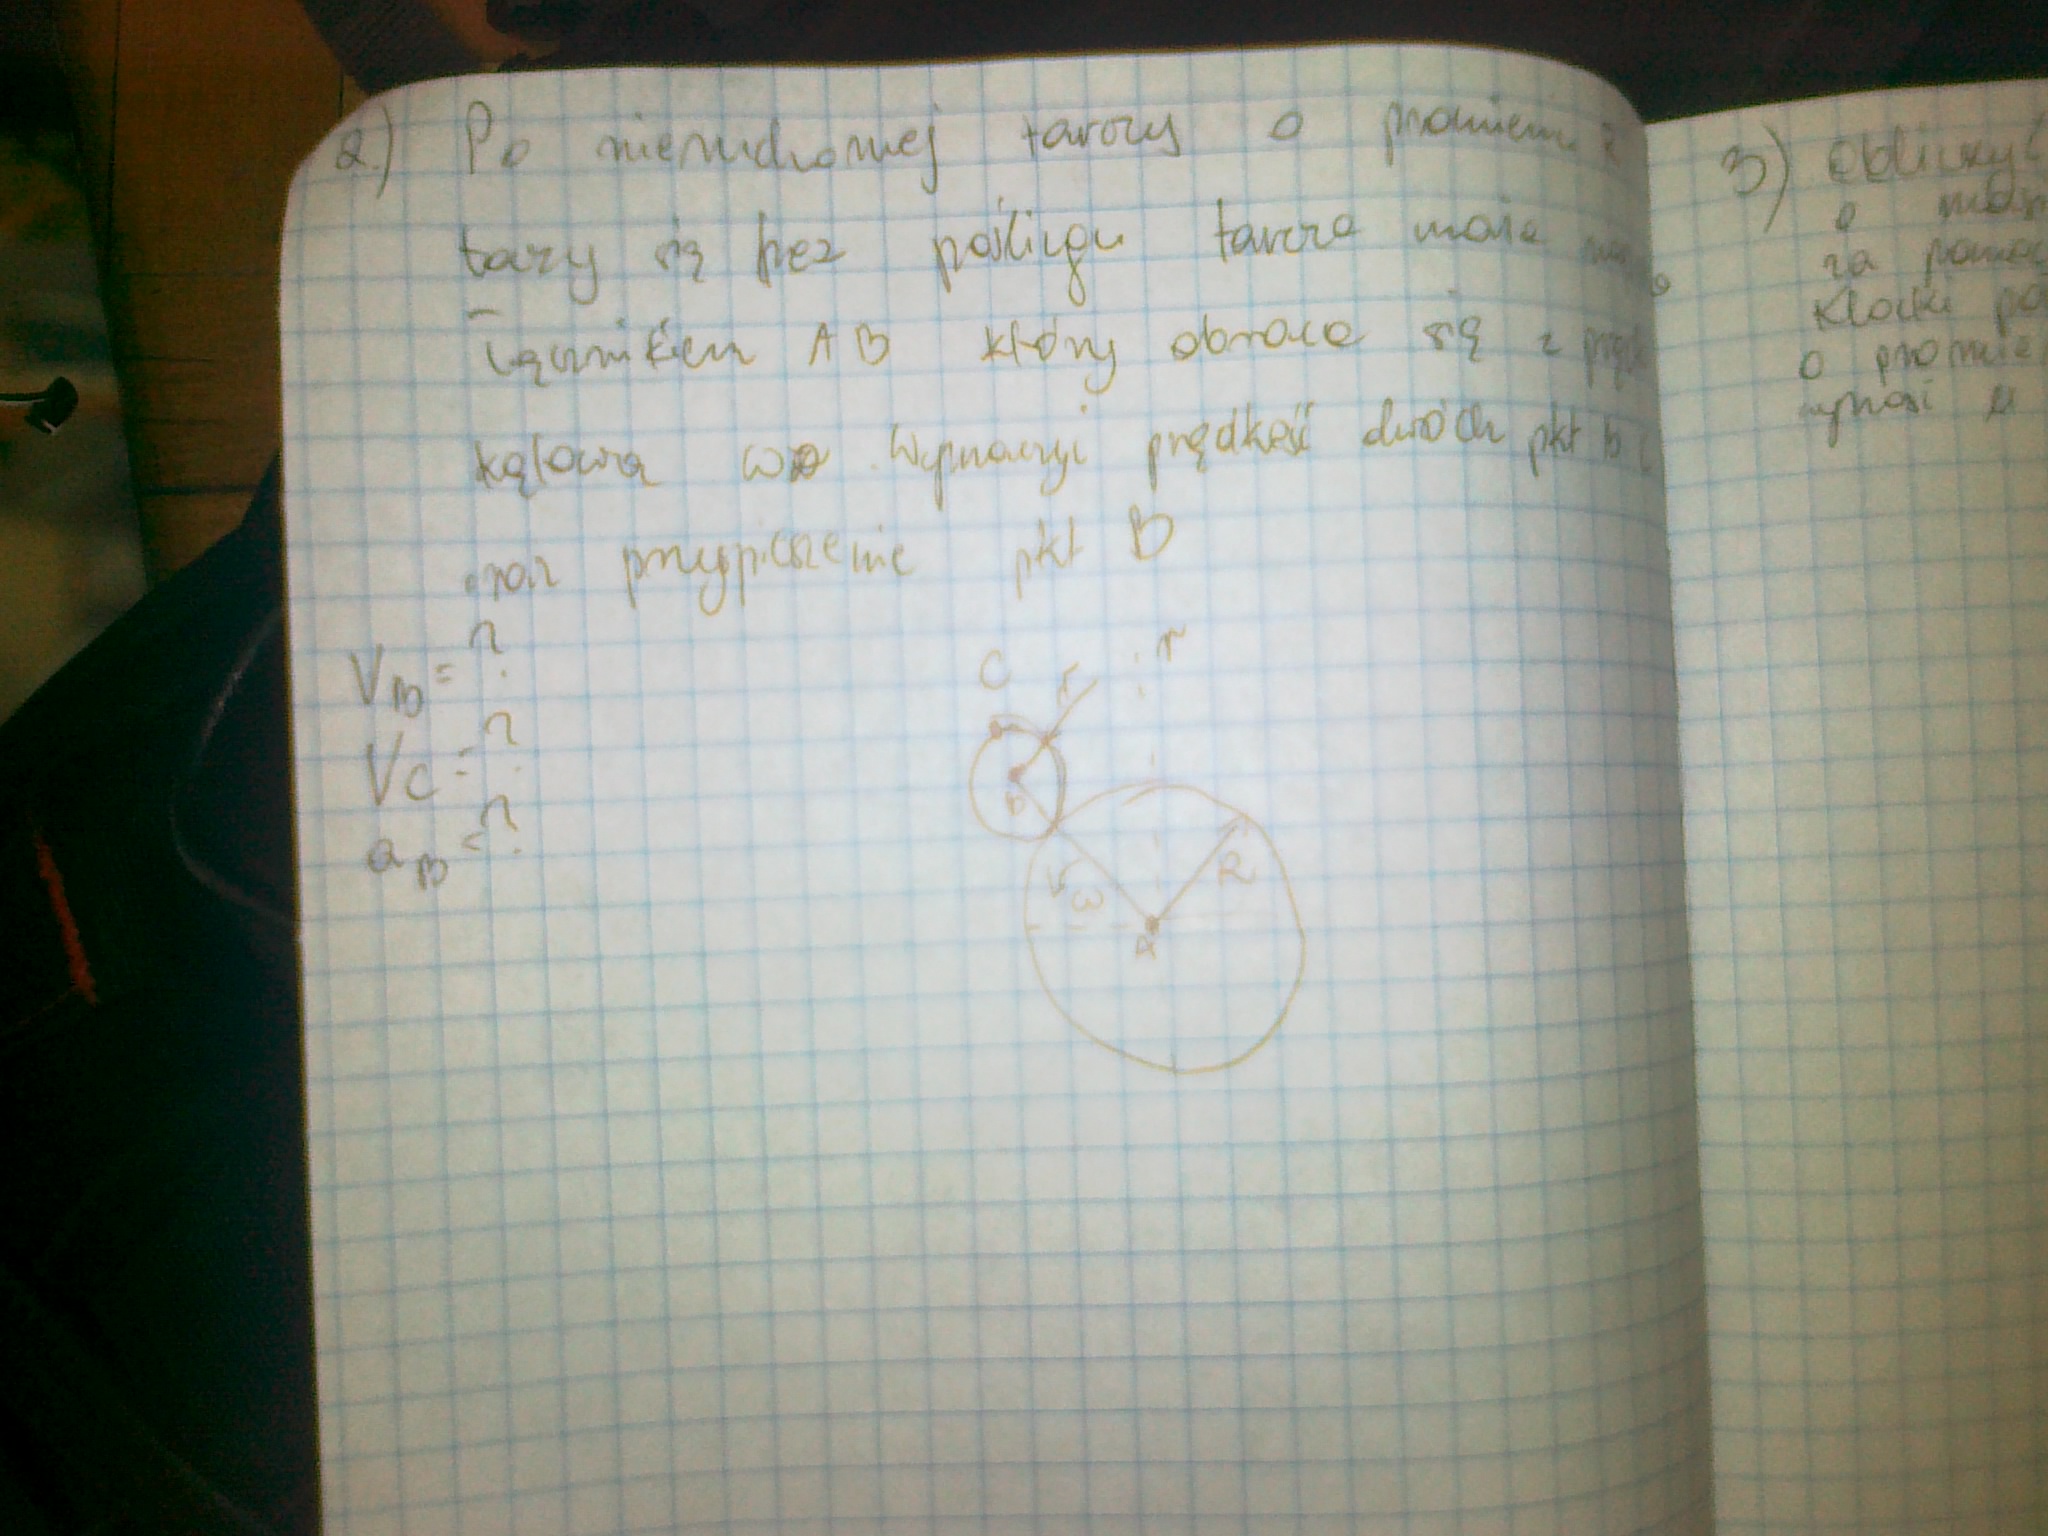 2.) Po nieruchomej tarczy o promieniu
taczy się bez poślizgu tarcza mała
łącznikiem AB który obraca się z
kątową ω0. Wyznaczyć prędkość dwóch pkt B
oraz przypieszenie pkt B
VB = ?
VC = ?
aB = ?
C
r
r
B
R
ω
A
3) Obliczyć
o
za pomoc
Klocki po
o promie
wynosi μ